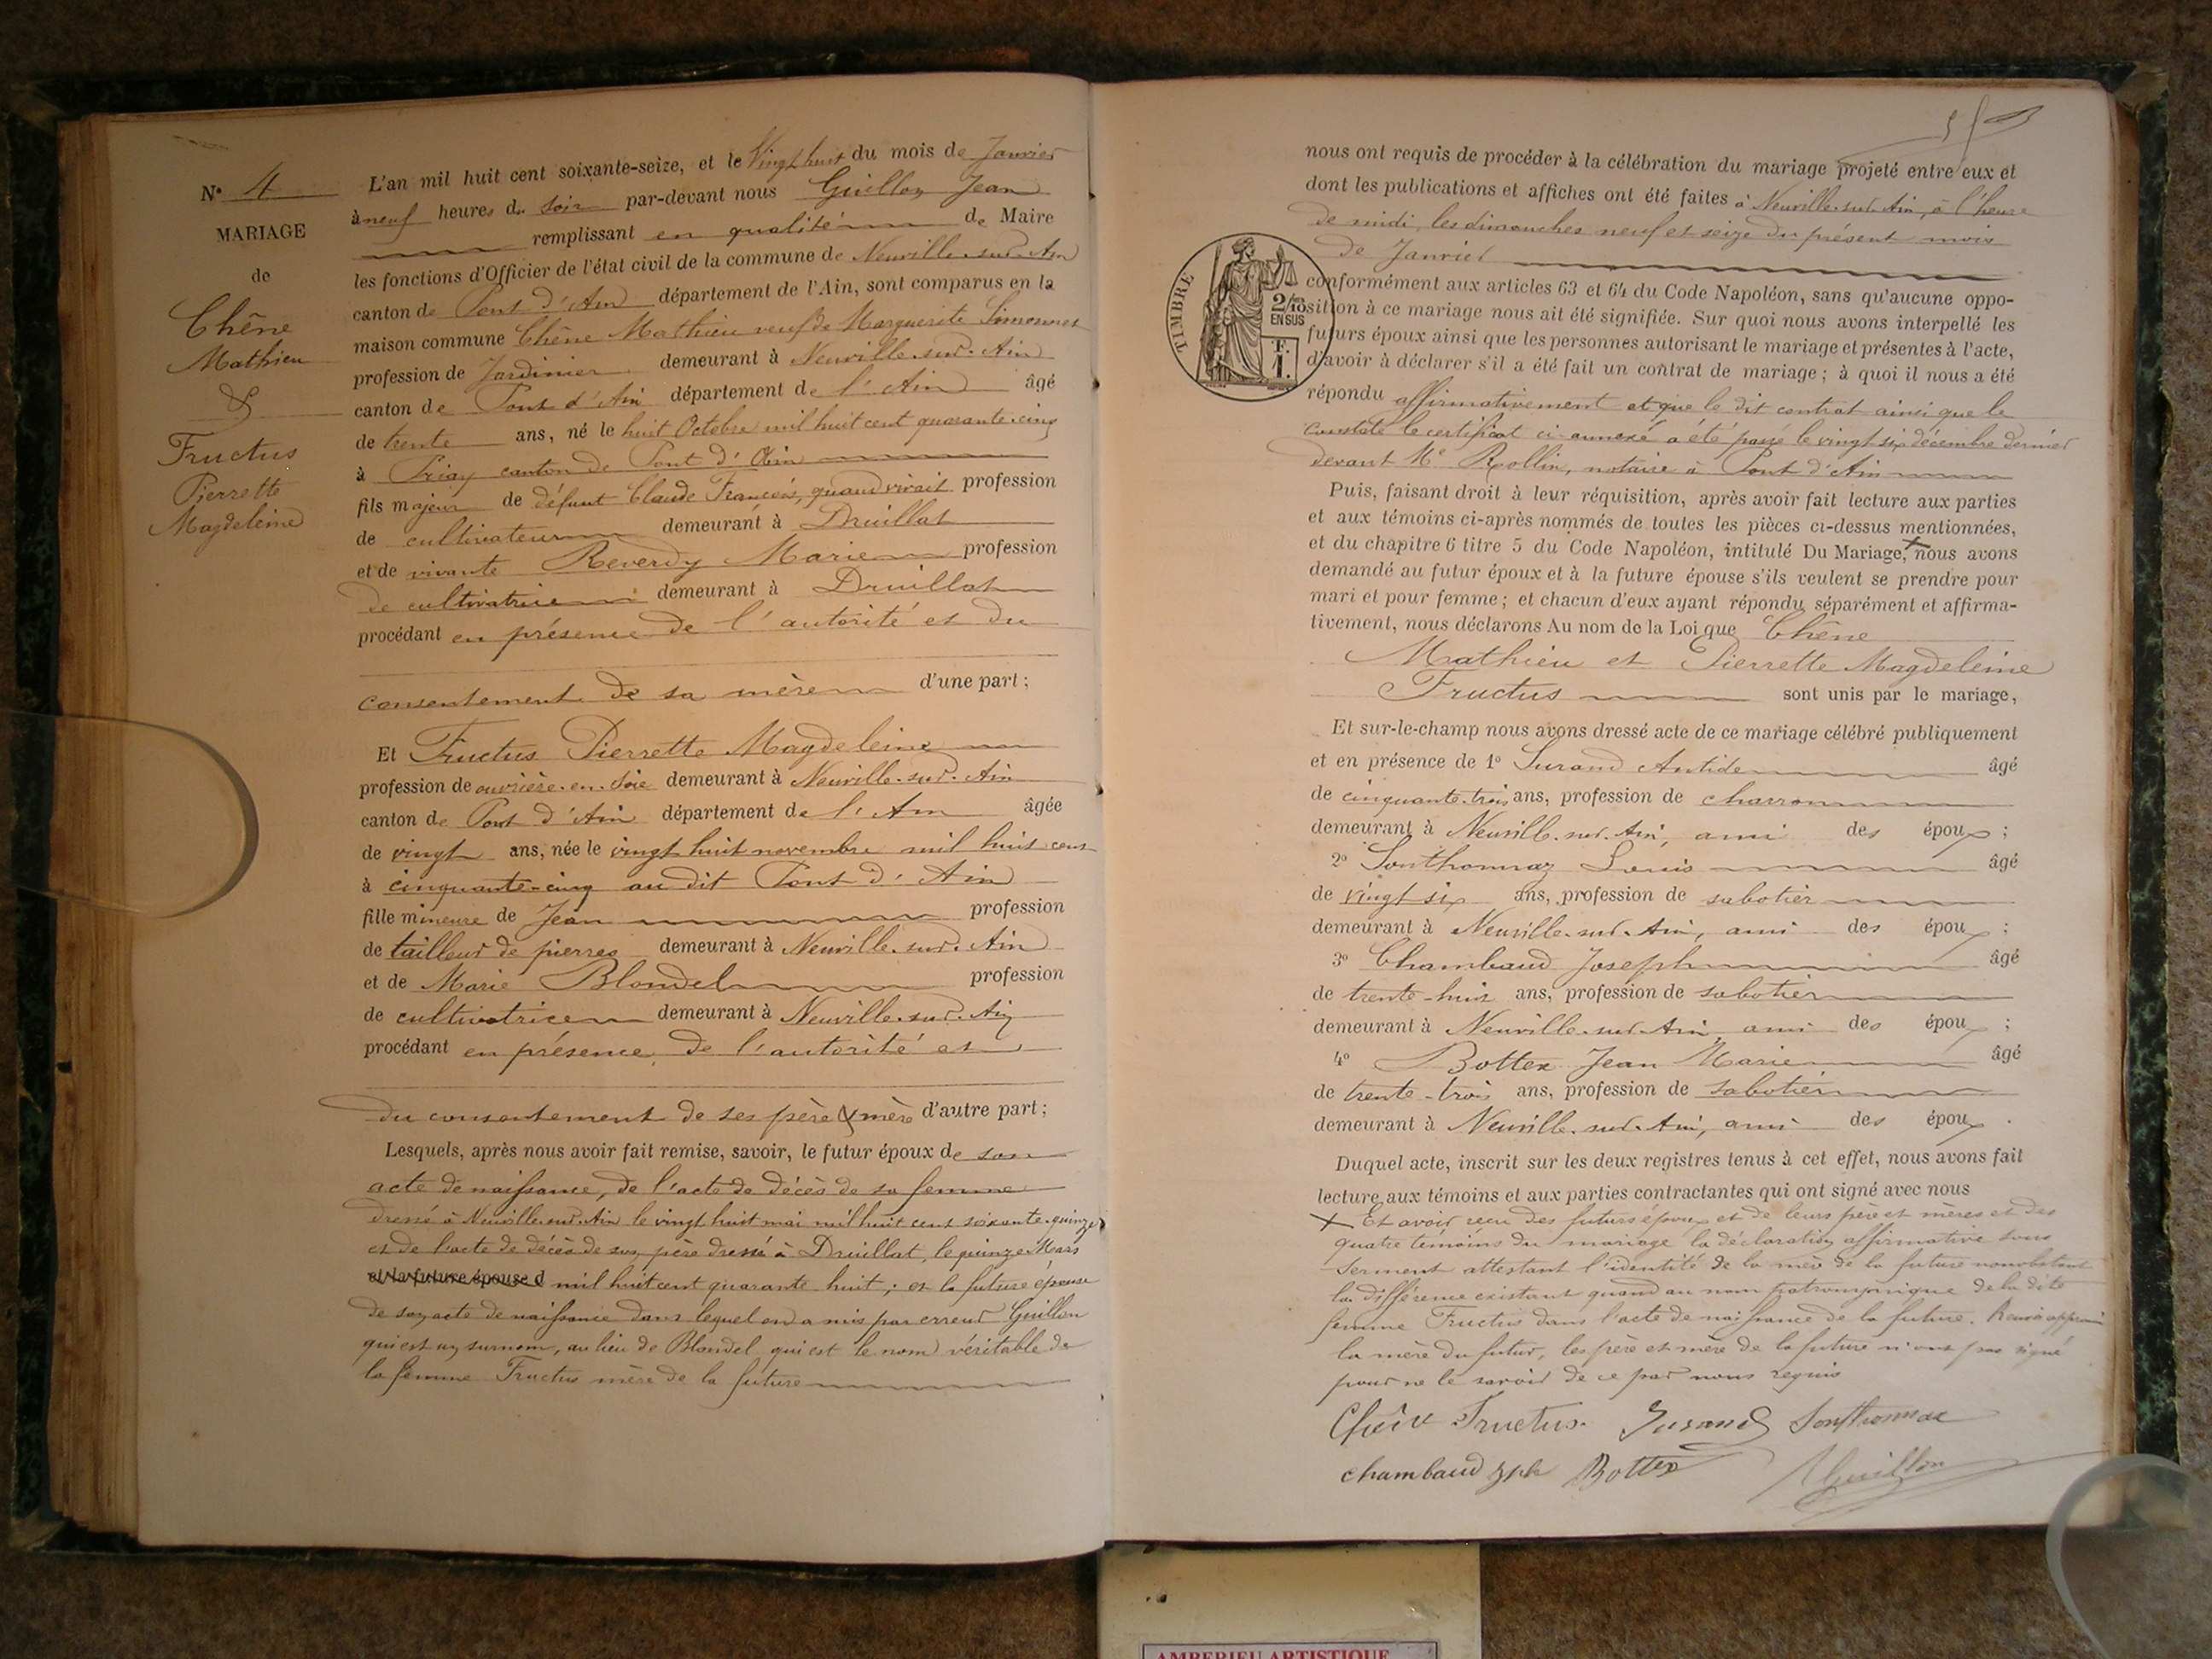 N° 4
MARIAGE
de
Chêne
Mathieu
&
Fructus
Pierrette
Magdeleine
L'an mil huit cent soixante-seize, et le Vingt huit du mois de Janvier
à neuf heures du soir par-devant nous Guillon Jean
remplissant en qualité de Maire
les fonctions d'Officier de l'état civil de la commune de Neuville-sur-Ain
canton de Pont d'Ain département de l'Ain, sont comparus en la
maison commune Chêne Mathieu veuf de Marguerite Simonnet
profession de Jardinier demeurant à Neuville-sur-Ain
canton de Pont d'Ain département de l'Ain âgé
de trente ans, né le huit Octobre mil huit cent quarante-cinq
à Priay canton de Pont d'Ain
fils majeur de défunt Claude François, quand vivait profession
de cultivateur demeurant à Druillat
et de vivante Reverdy Marie profession
de cultivatrice demeurant à Druillat
procédant en présence de l'autorité et du
consentement de sa mère d'une part;
Et Fructus Pierrette Magdeleine
profession de ouvrière-en-soie demeurant à Neuville-sur-Ain
canton de Pont d'Ain département de l'Ain âgée
de vingt ans, née le vingt huit novembre mil huit cent
à cinquante-cinq au dit Pont d'Ain
fille mineure de Jean profession
de tailleur de pierres demeurant à Neuville-sur-Ain
et de Marie Blondel profession
de cultivatrice demeurant à Neuville-sur-Ain
procédant en présence, de l'autorité et
du consentement de ses père & mère d'autre part;
Lesquels, après nous avoir fait remise, savoir, le futur époux de son
acte de naissance, de l'acte de décès de sa femme
dressé à Neuville-sur-Ain le vingt huit mai mil huit cent soixante-quinze
et de l'acte de décès de son père dressé à Druillat, le quinze Mars
et la future épouse d mil huit cent quarante huit; et la future épouse
de son acte de naissance dans lequel on a mis par erreur Guillon
qui est un surnom, au lieu de Blondel qui est le nom véritable de
la femme Fructus mère de la future
nous ont requis de procéder à la célébration du mariage projeté entre eux et
dont les publications et affiches ont été faites à Neuville-sur-Ain, à l'heure
de midi, les dimanches neuf et seize du présent mois
de Janvier
TIMBRE
2/10 EN SUS
F. 1.
conformément aux articles 63 et 64 du Code Napoléon, sans qu'aucune oppo-
sition à ce mariage nous ait été signifiée. Sur quoi nous avons interpellé les
futurs époux ainsi que les personnes autorisant le mariage et présentes à l'acte,
d'avoir à déclarer s'il a été fait un contrat de mariage; à quoi il nous a été
répondu affirmativement et que le dit contrat ainsi que le
constate le certificat ci-annexé a été passé le vingt six décembre dernier
devant Me Rollin, notaire à Pont d'Ain
Puis, faisant droit à leur réquisition, après avoir fait lecture aux parties
et aux témoins ci-après nommés de toutes les pièces ci-dessus mentionnées,
et du chapitre 6 titre 5 du Code Napoléon, intitulé Du Mariage, + nous avons
demandé au futur époux et à la future épouse s'ils veulent se prendre pour
mari et pour femme; et chacun d'eux ayant répondu séparément et affirma-
tivement, nous déclarons Au nom de la Loi que Chêne
Mathieu et Pierrette Magdeleine
Fructus sont unis par le mariage,
Et sur-le-champ nous avons dressé acte de ce mariage célébré publiquement
et en présence de 1° Surand Antide âgé
de cinquante-trois ans, profession de charron
demeurant à Neuville-sur-Ain, ami des époux;
2° Sonthonnax Louis âgé
de vingt six ans, profession de sabotier
demeurant à Neuville-sur-Ain, ami des époux;
3° Chambaud Joseph âgé
de trente-huit ans, profession de sabotier
demeurant à Neuville-sur-Ain, ami des époux;
4° Bottex Jean Marie âgé
de trente-trois ans, profession de sabotier
demeurant à Neuville-sur-Ain, ami des époux.
Duquel acte, inscrit sur les deux registres tenus à cet effet, nous avons fait
lecture aux témoins et aux parties contractantes qui ont signé avec nous
+ Et avoir reçu des futurs époux et de leurs père et mères et des
quatre témoins du mariage la déclaration affirmative sous
serment attestant l'identité de la mère de la future nonobstant
la différence existant quand au nom patronymique de la dite
femme Fructus dans l'acte de naissance de la future. Renvoi approuvé
la mère du futur, les père et mère de la future n'ont pas signé
pour ne le savoir de ce par nous requis
Chêne Fructus. Surand Sonthonnax
Chambaud Jph Bottex Guillon
AMBERIEU ARTISTIQUE